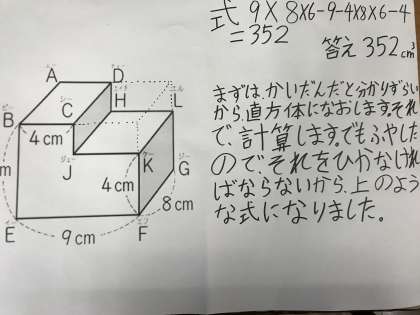 式 9×8×6-9-4×8×6-4
=352
答え 352cm³
まずは、かいだんだと分かりずらい
から、直方体になおします。それ
で、計算します。でもふやした
ので、それをひかなけれ
ばならないから、上のよう
な式になりました。
A
D
H
L
B
C
4cm
J
K
4cm
G
m
8cm
E
F
9cm